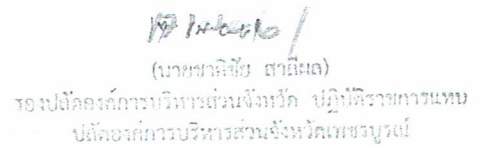 (นายชาติชัย สาลีผล)
รองปลัดองค์การบริหารส่วนจังหวัด ปฏิบัติราชการแทน
ปลัดองค์การบริหารส่วนจังหวัดเพชรบูรณ์